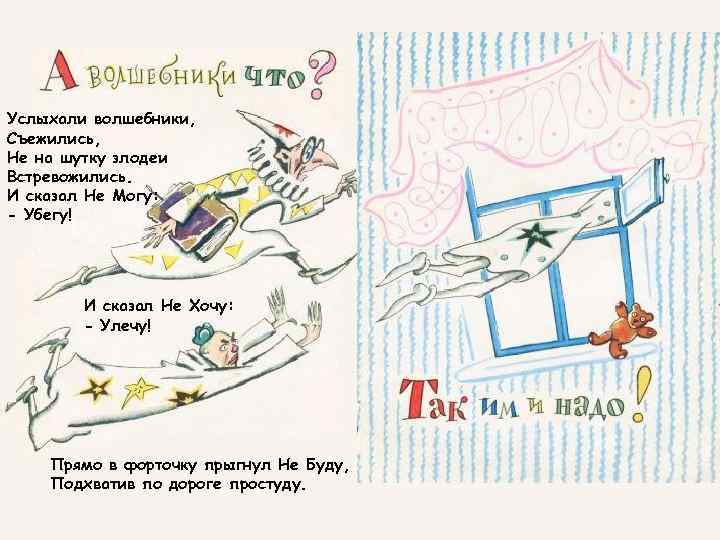 А ВОЛШЕБНИКИ ЧТО?
Услыхали волшебники,
Съежились,
Не на шутку злодеи
Встревожились.
И сказал Не Могу:
- Убегу!
И сказал Не Хочу:
- Улечу!
Прямо в форточку прыгнул Не Буду,
Подхватив по дороге простуду.
Так им и надо!